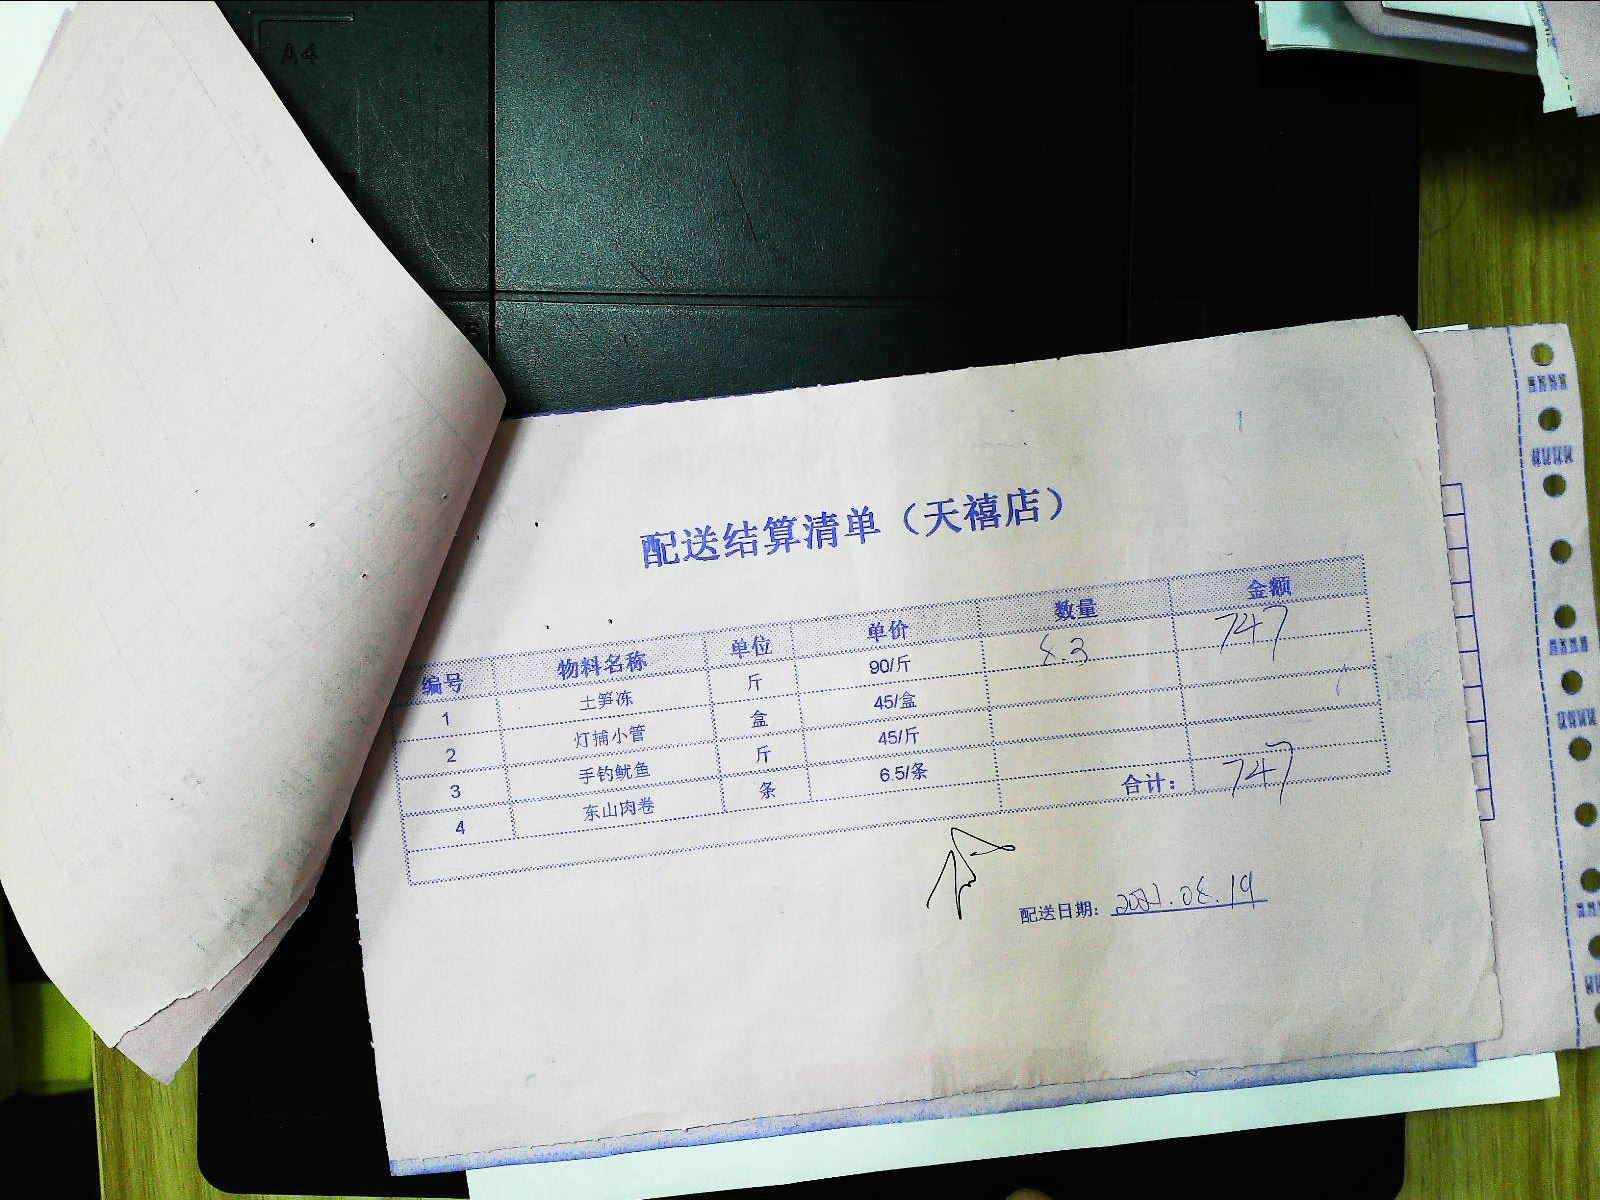 A4
配送结算清单（天禧店）
编号 物料名称 单位 单价 数量 金额
1 土笋冻 斤 90/斤 8.3 747
2 灯捕小管 盒 45/盒
3 手钓鱿鱼 斤 45/斤
4 东山肉卷 条 6.5/条
合计： 747
配送日期：2021.08.19